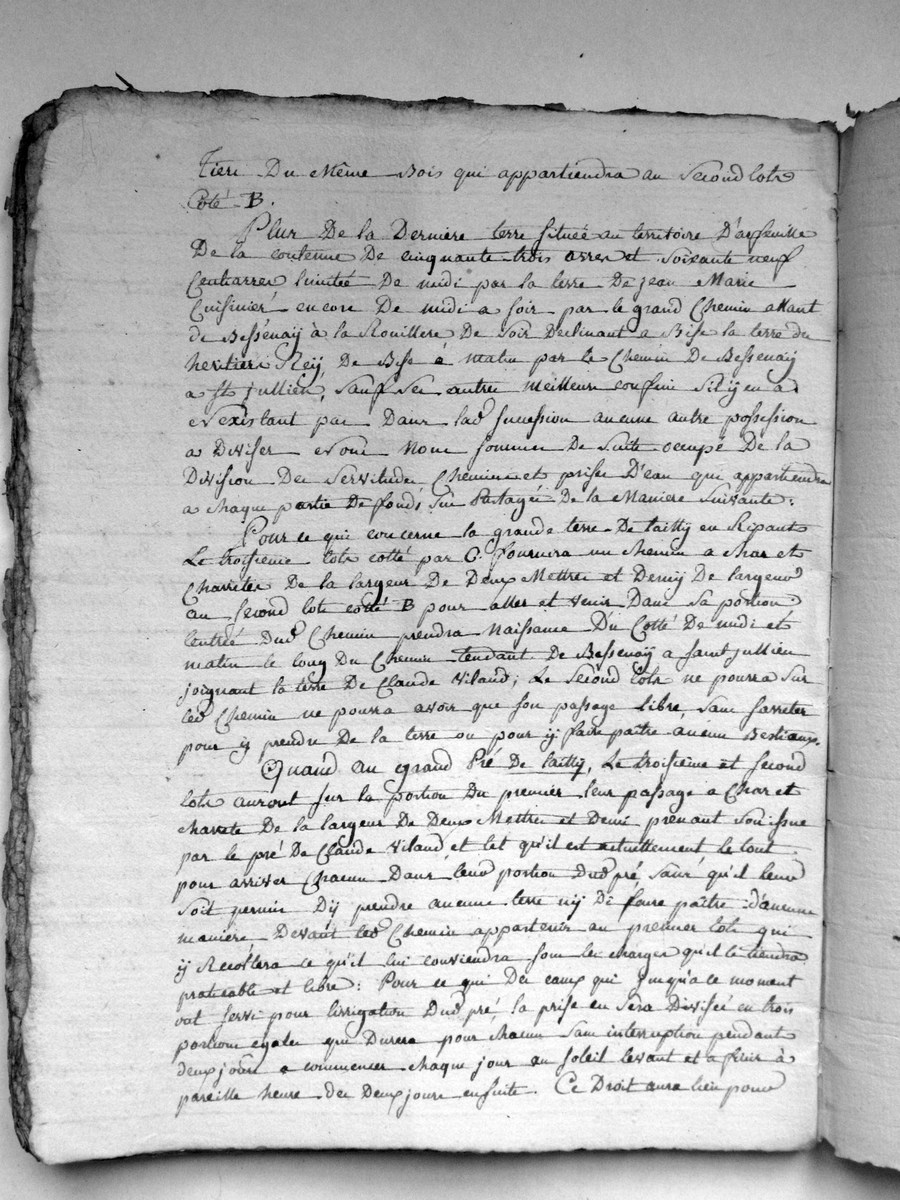 Tiers Du Même Bois qui appartiendra au Second lots
Coté B.
Plus De la Derniere terre située au territoire D'
De la contenue De cinquante trois arres et soixante neuf
Centiarres limitée De midi par la terre De jean Marie
Cuisinier, encore De midi a soir par le grand Chemin allant
de Bessenaÿ à la Rouillere De soir Declinant a Bise la terre du
heritiers Reÿ, De Bise à matin par le Chemin De Bessenaÿ
a St jullien, sauf ses autres meilleurs confins s'il ÿ en a
existant pas Dans lad succession aucune autre possession
a Diviser nous sommes De suite ocupé De la
Division Des Servitudes Chemins et prises D'eau qui appartiendra
a chaque partie De fonds sus Partagés De la Maniere Suivante:
Pour ce qui concerne la grande terre De tailly en Ripant
Le troisieme lots cotté par C. fournira un chemin a char et
Charretes De la largeur De Deux Mettres et Demÿ De largeur
au second lots cotté B pour aller et venir Dans sa portion
l'entrée Dud Chemin prendra Naissance Du Cotté De midi et
matin le long Du Chemin tendant De Bessenaÿ a saint jullien
joignant la terre De Claude Vilaud; Le second lots ne pourra sur
led Chemin ne pourra avoir que son passage Libre, sans s'arreter
pour ÿ prendre De la terre ou pour ÿ faire paître aucuns Bestiaux.
Quand au grand Pré De tailly, Le troisieme et second
lots auront sur la portion Du premier leur passage a Char et
charete De la largeur De Deux Mettres et Demi prenant son issue
par le pré De Claude Vilaud et tel qu'il est actuellement le tout
pour arriver Chacun Dans leur portion Dud pré sans qu'il leur
soit permis D'ÿ prendre aucune terre nÿ De faire paître d'aucune
maniere, Devant led Chemin appartenir au premier lots qui
ÿ Recoltera ce qu'il lui conviendra sous les charges qu'il le tiendra
praticable et libre: Pour ce qui Des eaux qui jusqu'a ce moment
ont servi pour l'irrigation Dud pré, la prise en sera Divisée en trois
portions egales que Durera pour chacun sans interruption pendant
deux jours a commencer chaque jour au soleil levant et a finir à
pareille heure des Deux jours ensuite. Ce Droit aura lieu pour